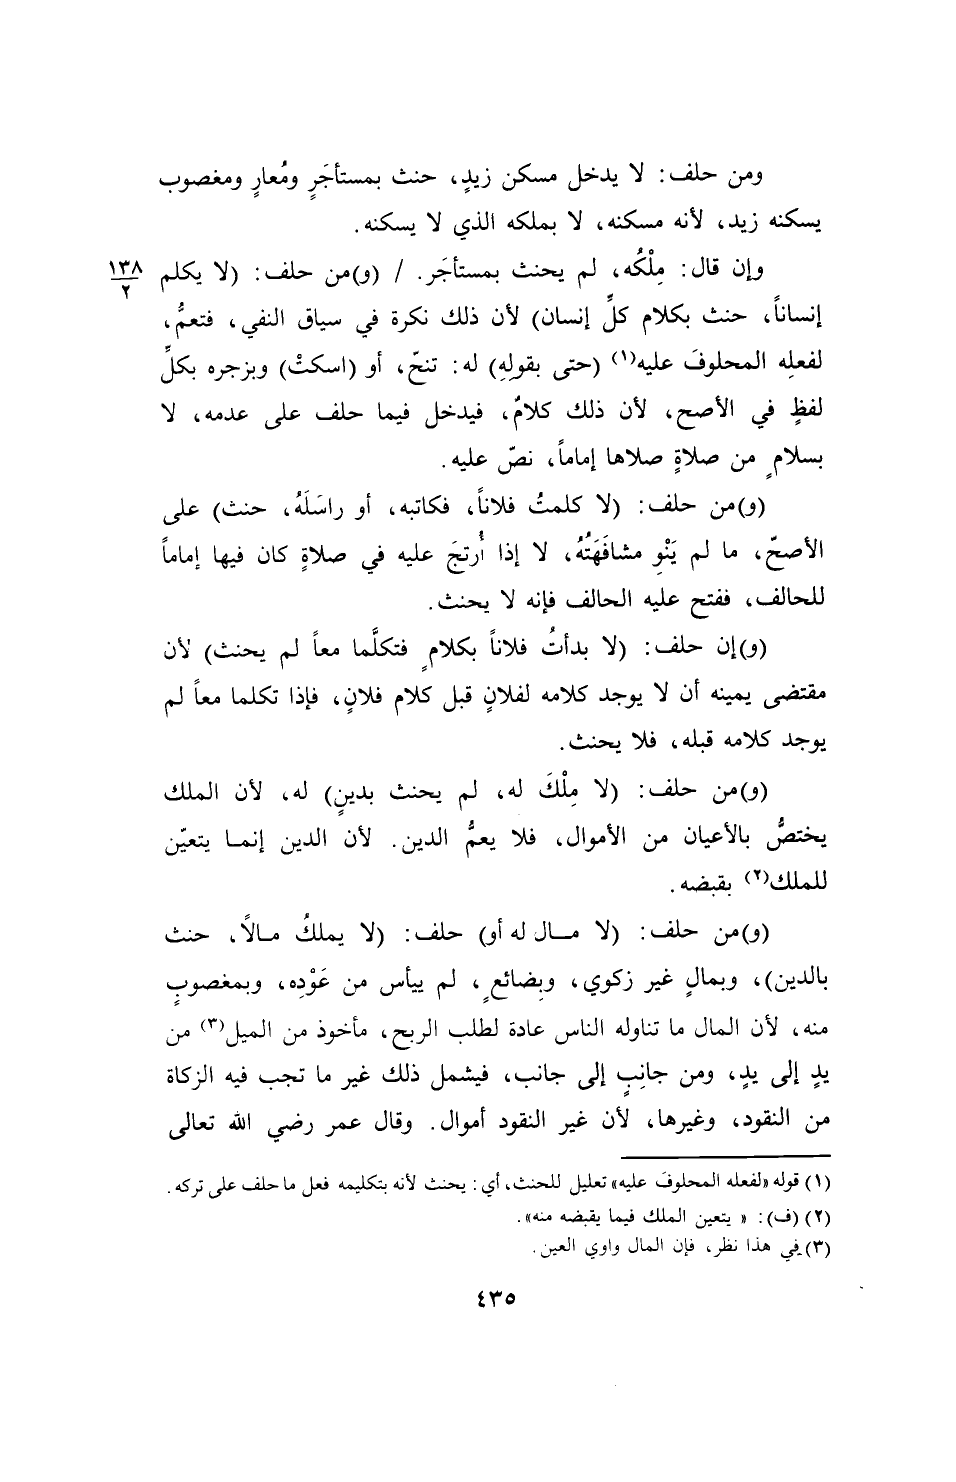 ومن حلف: لا يدخل مسكن زيدٍ، حنث بمستأجَرٍ ومُعارٍ ومغصوب
يسكنه زيد، لأنه مسكنه، لا بملكه الذي لا يسكنه.
وإن قال: مِلْكُه، لم يحنث بمستأجَر. / (و)من حلف: (لا يكلم ١٣٨/٢
إنساناً، حنث بكلام كلِّ إنسان) لأن ذلك نكرة في سياق النفي، فتعمُّ،
لفعلِه المحلوفَ عليه(١) (حتى بقولِهِ) له: تنحّ، أو (اسكتْ) وبزجره بكلِّ
لفظٍ في الأصح، لأن ذلك كلامٌ، فيدخل فيما حلف على عدمه، لا
بسلامٍ من صلاةٍ صلاها إماماً، نصّ عليه.
(و)من حلف: (لا كلمتُ فلاناً، فكاتبه، أو راسَلَهُ، حنث) على
الأصحّ، ما لم يَنْوِ مشافَهَتُهُ، لا إذا أُرتجَ عليه في صلاةٍ كان فيها إماماً
للحالف، ففتح عليه الحالف فإنه لا يحنث.
(و)إن حلف: (لا بدأتُ فلاناً بكلامٍ فتكلَّما معاً لم يحنث) لأن
مقتضى يمينه أن لا يوجد كلامه لفلانٍ قبل كلام فلانٍ، فإذا تكلما معاً لم
يوجد كلامه قبله، فلا يحنث.
(و)من حلف: (لا مِلْكَ له، لم يحنث بدينٍ) له، لأن الملك
يختصُّ بالأعيان من الأموال، فلا يعمُّ الدين. لأن الدين إنما يتعيّن
للملك(٢) بقبضه.
(و)من حلف: (لا مال له أو) حلف: (لا يملكُ مالاً، حنث
بالدين)، وبمالٍ غير زكوي، وبِضائعٍ، لم ييأس من عَوْدِه، وبمغصوبٍ
منه، لأن المال ما تناوله الناس عادة لطلب الربح، مأخوذ من الميل(٣) من
يدٍ إلى يدٍ، ومن جانِبٍ إلى جانب، فيشمل ذلك غير ما تجب فيه الزكاة
من النقود، وغيرها، لأن غير النقود أموال. وقال عمر رضي الله تعالى
(١) قوله «لفعله المحلوفَ عليه» تعليل للحنث، أي: يحنث لأنه بتكليمه فعل ما حلف على تركه.
(٢) (ف): « يتعين الملك فيما يقبضه منه».
(٣) في هذا نظر، فإن المال واوي العين.
٤٣٥